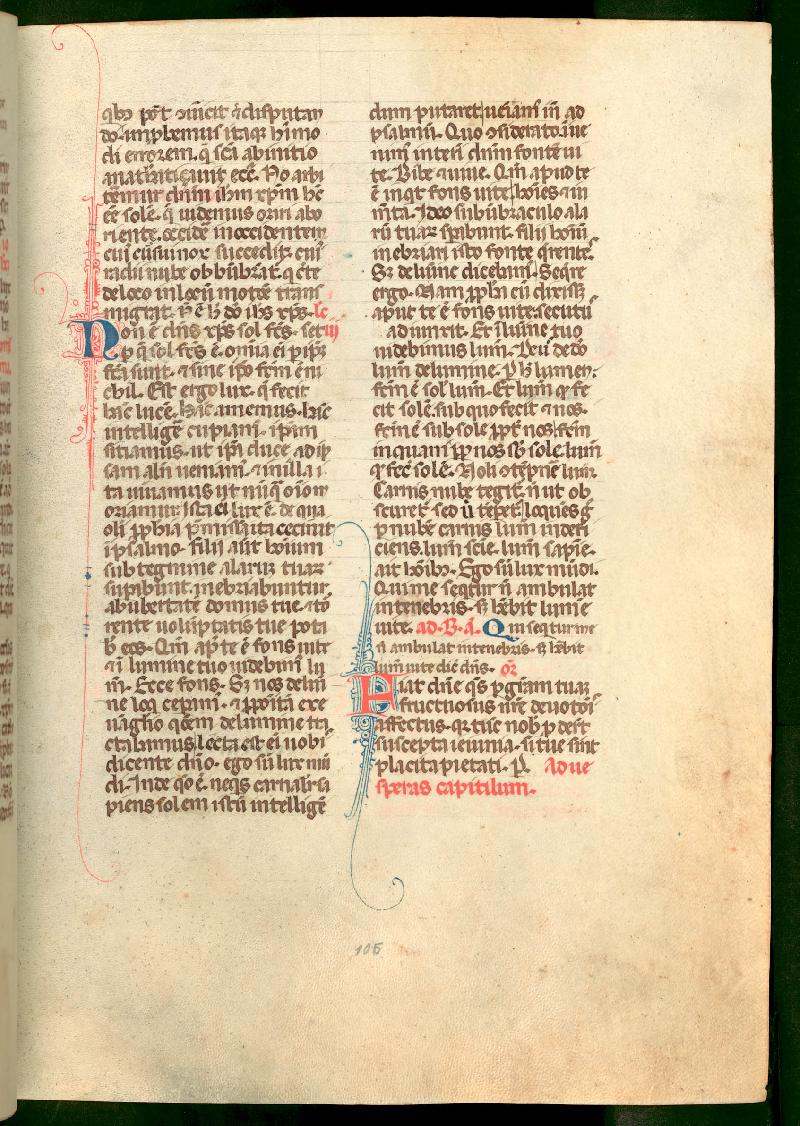 qbꝫ pōt ɔuīcit ⁊ disputan
do. implemus itaqꝫ hīmo
di errorem. q̄ scā ab initio
anathatiꝫauit ecc̄. No arbi
temur dn̄m ihm xp̄m hē
ēē solē. q̄ uidemus oriri abo
riente. occidē in occidentem
cui cūsui nox succedit. cui
radii nube obūbrāt. q̄ c̄te
de loco in locū motōe trans
migrat. n̄ ē h̄ dō ihs xp̄s. lc̄
Non ē dn̄s xp̄s sol fcs̄. sed iij
p q̄ sol fcs̄ ē. omīa ei pip̄ꝫ
fcā sunt. ⁊ sine ip̄o fcm̄ ē ni
chil. Est ergo lux. q̄ fecit
hāc lucē. hāc amemus. hāc
intelligē cupiam. ip̄am
sitiamus. ut ip̄a duce ad ip̄
sam aliqn̄ ueniam. ⁊ in illa i
ta uiuamus ut nūq̄ oīom̄
oriamur. Ista ei lux ē. de qua
oli pphia p̄missa ita cecinit
ī psalmo. filii aūt hoīum
sub tegmine alarū tuaꝝ
sp̄abunt. inebriabuntur
ab ubertate domus tue. ⁊ tō
rente uoluptatis tue pota
b̄ eos. Qm̄ ap̄ te ē fons uite
⁊ ī lumine tuo uidebim̄ lu
m̄. Ecce fons. Sꝫ nos de lum̄
ne loq̄ cepim̄. ⁊ pposita exe
uāglio q̄cem de lumine tra
ctabamus lecta est ei nobi
dicente dn̄o. ego sū lux mū
di. Inde qō ē. neq̄s carnalr̄ sa
piens solem istū intelligē
dum putaret. uciam̄ in ad
psalmū. Quo ɔsiderato. īue
nim̄ interi dn̄m fontē ui
te. Bibe ⁊ uiue. Qm̄ apud te
ē inqt fons uite. hoīes ⁊ iu
m̄ta. Ideo sub ūbraculo ala
rū tuaꝝ sp̄abunt. filii hoīm̄
inebriari isto fonte q̄rente.
Sꝫ de lum̄e dicebam̄. Seqr̄e
ergo. Nam pph̄a cū dixisꝫ
aput te ē fons uite. secutū
adiunxit. Et ī lum̄e tuo
uidebimus lum̄. Deū de dō
lum̄ de lumine. P h̄ lumen
fcm̄ ē sol lum̄. Et lum̄ q̄ fe
cit solē. sub quo fecit ⁊ nos.
fcm̄ ē sub sole ppt̄ nos. fcm̄
inquam ppt̄ nos sb̄ sole. lum̄
q̄ fec̄ solē. Noli ɔtēpnē lum̄.
Carnis nube tegit̄. n̄ ut ob
scuret̄. sed ut tēpet̄. loques g̊
p nubē carnis lum̄ indefi
ciens. lum̄ scie. lum̄ sapie.
ait hoībꝫ. Ego sū lux mūdi.
Qui me seqtur n̄ ambulat
in tenebris. sꝫ hēbit lum̄e
uite. ad. B. a. Qui seqtur me
n̄ ambulat in tenebris. sꝫ hēbit
lum̄ uite dic̄ dn̄s. or̄
Fiat dn̄e qs̄ p gr̄am tuā
fructuosus nr̄e deuotōi
affectus. qꝛ tūc nob̄ p dest
suscepta ieiunia. si tue sint
placita pietati. P. Ad ue
speras capitulum.
105